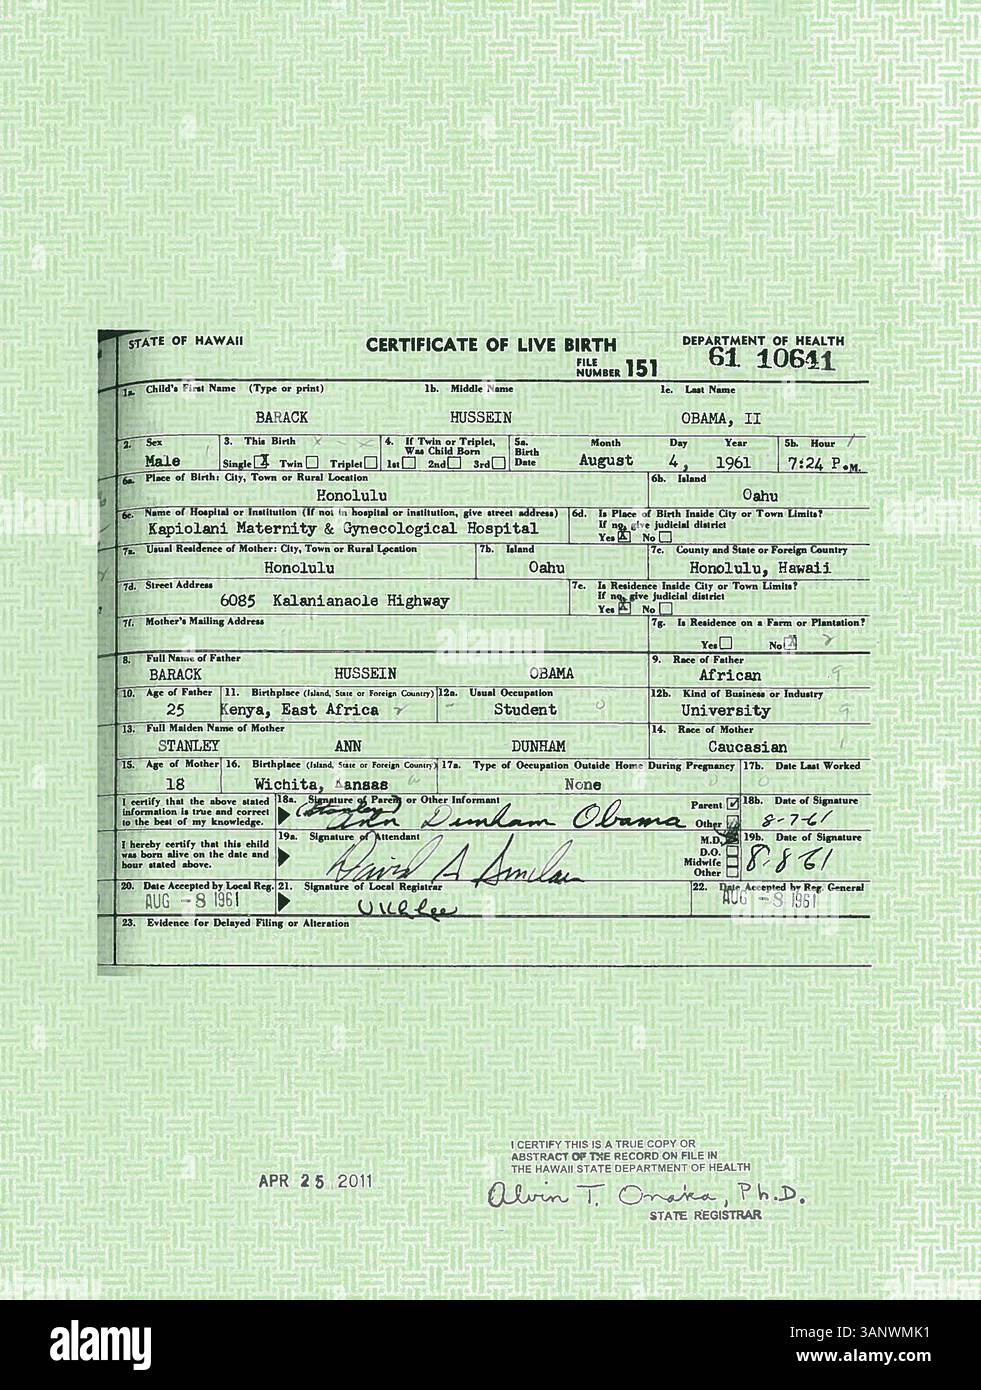 STATE OF HAWAII CERTIFICATE OF LIVE BIRTH DEPARTMENT OF HEALTH
FILE NUMBER 151 61 10641
1a. Child's First Name (Type or print) 1b. Middle Name 1c. Last Name
BARACK HUSSEIN OBAMA, II
2. Sex 3. This Birth 4. If Twin or Triplet, Was Child Born 5a. Birth Date Month Day Year 5b. Hour
Male Single X Twin Triplet 1st 2nd 3rd August 4, 1961 7:24 P.M.
6a. Place of Birth: City, Town or Rural Location 6b. Island
Honolulu Oahu
6c. Name of Hospital or Institution (If not in hospital or institution, give street address) 6d. Is Place of Birth Inside City or Town Limits? If no, give judicial district
Kapiolani Maternity & Gynecological Hospital Yes X No
7a. Usual Residence of Mother: City, Town or Rural Location 7b. Island 7c. County and State or Foreign Country
Honolulu Oahu Honolulu, Hawaii
7d. Street Address 7e. Is Residence Inside City or Town Limits? If no, give judicial district
6085 Kalanianaole Highway Yes X No
7f. Mother's Mailing Address 7g. Is Residence on a Farm or Plantation?
Yes No X
8. Full Name of Father 9. Race of Father
BARACK HUSSEIN OBAMA African 9
10. Age of Father 11. Birthplace (Island, State or Foreign Country) 12a. Usual Occupation 12b. Kind of Business or Industry
25 Kenya, East Africa Student University 9
13. Full Maiden Name of Mother 14. Race of Mother
STANLEY ANN DUNHAM Caucasian 1
15. Age of Mother 16. Birthplace (Island, State or Foreign Country) 17a. Type of Occupation Outside Home During Pregnancy 17b. Date Last Worked
18 Wichita, Kansas None
I certify that the above stated information is true and correct to the best of my knowledge. 18a. Signature of Parent or Other Informant Parent Other 18b. Date of Signature
(Stanley) Ann Dunham Obama 8-7-61
I hereby certify that this child was born alive on the date and hour stated above. 19a. Signature of Attendant M.D. D.O. Midwife Other 19b. Date of Signature
David A Sinclair 8-8-61
20. Date Accepted by Local Reg. 21. Signature of Local Registrar 22. Date Accepted by Reg. General
AUG -8 1961 U K L Lee AUG -8 1961
23. Evidence for Delayed Filing or Alteration
I CERTIFY THIS IS A TRUE COPY OR
ABSTRACT OF THE RECORD ON FILE IN
THE HAWAII STATE DEPARTMENT OF HEALTH
APR 25 2011
Alvin T. Onaka, Ph.D.
STATE REGISTRAR
alamy
Image ID: 3ANWMK1
www.alamy.com